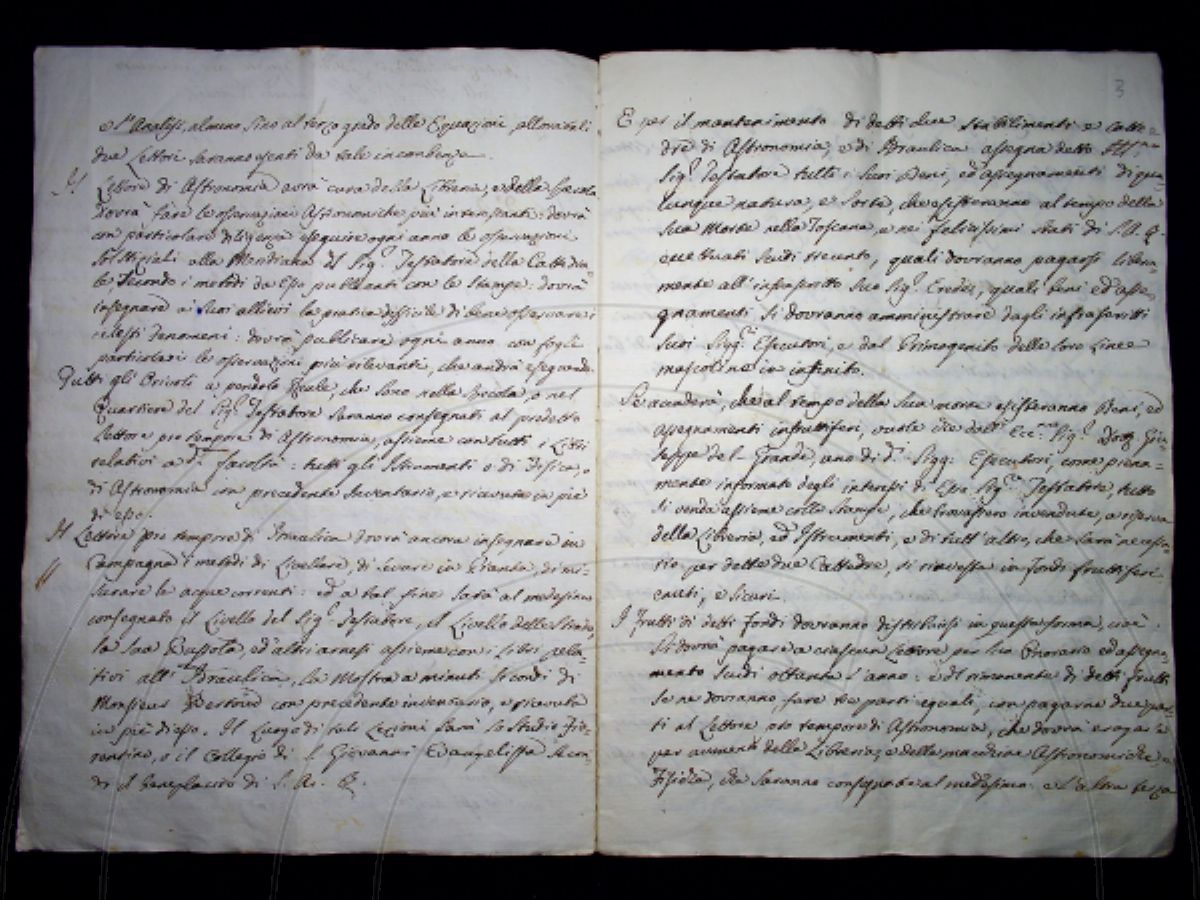 e l'Analisi, almeno sino al terzo grado delle Equazioni, alloraché i
due Lettori saranno esenti da tale incombenza.
Il Lettore di Astronomia avrà cura della Libreria, e della Specola
dovrà fare le osservazioni Astronomiche più importanti: dovrà
con particolare diligenza eseguire ogni anno le osservazioni
Solstiziali alla Meridiana del Sig.r Testatore della Cattedra-
le, secondo i metodi da Esso pubblicati con le Stampe: dovrà
insegnare ai suoi allievi la pratica difficile di bene osservare i
celesti Fenomeni: dovrà publicare ogni anno con fogli
particolari le osservazioni più rilevanti, che andrà eseguendo.
Tutti gli Orivoli a pendolo Reale, che sono nella Specola, o nel
Quartiere del Sig.r Testatore saranno consegnati al predetto
Lettore pro tempore di Astronomia, assieme con tutti i Libri
relativi a d.a facoltà: tutti gli Istrumenti o di Fisica, o
di Astronomia con precedente Inventario, e ricevuta in piè
di esso.
Il Lettore pro tempore di Idraulica dovrà ancora insegnare in
Campagna i metodi di Livellare, di levare in Pianta, di mi-
surare le acque correnti: ed a tal fine sarà al medesimo
consegnato il Livello del Sig.r Testatore, il Livello delle Strade,
la sua Bussola, ed altri arnesi assieme con i Libri rela-
tivi all'Idraulica, la Mostra a minuti secondi di
Monsieur Bertoud con precedente inventario, e ricevuta
in piè di esso. Il Luogo di tali Lezioni sarà lo Studio Fio-
rentino, o il Collegio di S. Giovanni Evangelista secon-
do il beneplacito di S. A. R.
3
E per il mantenimento di detti due stabilimenti e catte-
dre di Astronomia, e di Idraulica assegna detto Ill.mo
Sig.r Testatore tutti i suoi Beni, ed assegnamenti di qua-
lunque natura, e sorte, che esisteranno al tempo della
sua Morte nella Toscana, e nei felicissimi Stati di S. A. R.
eccettuati Scudi trecento, quali dovranno pagarsi libera-
mente all'infrascritto suo Sig.r Erede, quali beni ed asse-
gnamenti si dovranno amministrare dagli infrascritti
suoi Sigg.ri Esecutori, e dal Primogenito delle loro Linee
mascoline in infinito.
Se accaderà, che al tempo della sua morte esisteranno Beni, ed
assegnamenti infruttiferi, vuole che dall' Ecc.mo Sig.r Dott. Giu-
seppe del Grande, uno di d.i Sigg.ri Esecutori, come piena-
mente informato degli interessi di Esso Sig.r Testatore, tutto
si venda assieme colle Stampe, che trovassero invendute, a riserva
della Libreria, ed Istrumenti, e di tutt'altro, che sarà necessa-
rio per dette due Cattedre, si rinvesta in fondi fruttiferi
cauti, e sicuri.
I frutti di detti fondi dovranno distribuirsi in questa forma, cioè.
Si dovrà pagare a ciascun Lettore per suo Onorario ed assegna-
mento Scudi ottanta l'anno: e del rimanente di detti frutti
se ne dovranno fare tre parti eguali, con pagarne due par-
ti al Lettore pro tempore di Astronomia, che dovrà erogarle
per aumento della Libreria, e delle macchine Astronomiche e
Fisiche, che saranno consegnate al medesimo: e l'altra terza